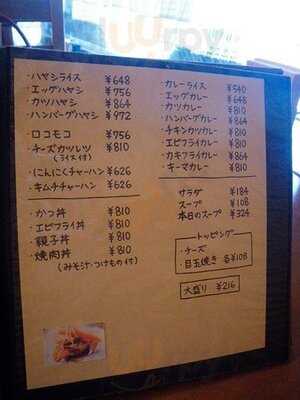 ・ハヤシライス ¥648
・エッグハヤシ ¥756
・カツハヤシ ¥864
・ハンバーグハヤシ ¥972
・ロコモコ ¥756
・チーズカツレツ ¥810
(ライス付)
・にんにくチャーハン ¥626
・キムチチャーハン ¥626
・かつ丼 ¥810
・エビフライ丼 ¥810
・親子丼 ¥810
・焼肉丼 ¥810
(みそ汁・つけもの付)
・カレーライス ¥540
・エッグカレー ¥648
・カツカレー ¥810
・ハンバーグカレー ¥864
・チキンカツカレー ¥810
・エビフライカレー ¥810
・カキフライカレー ¥864
・キーマカレー ¥810
サラダ ¥184
スープ ¥108
本日のスープ ¥324
トッピング
・チーズ
・目玉焼き 各¥108
大盛り ¥216